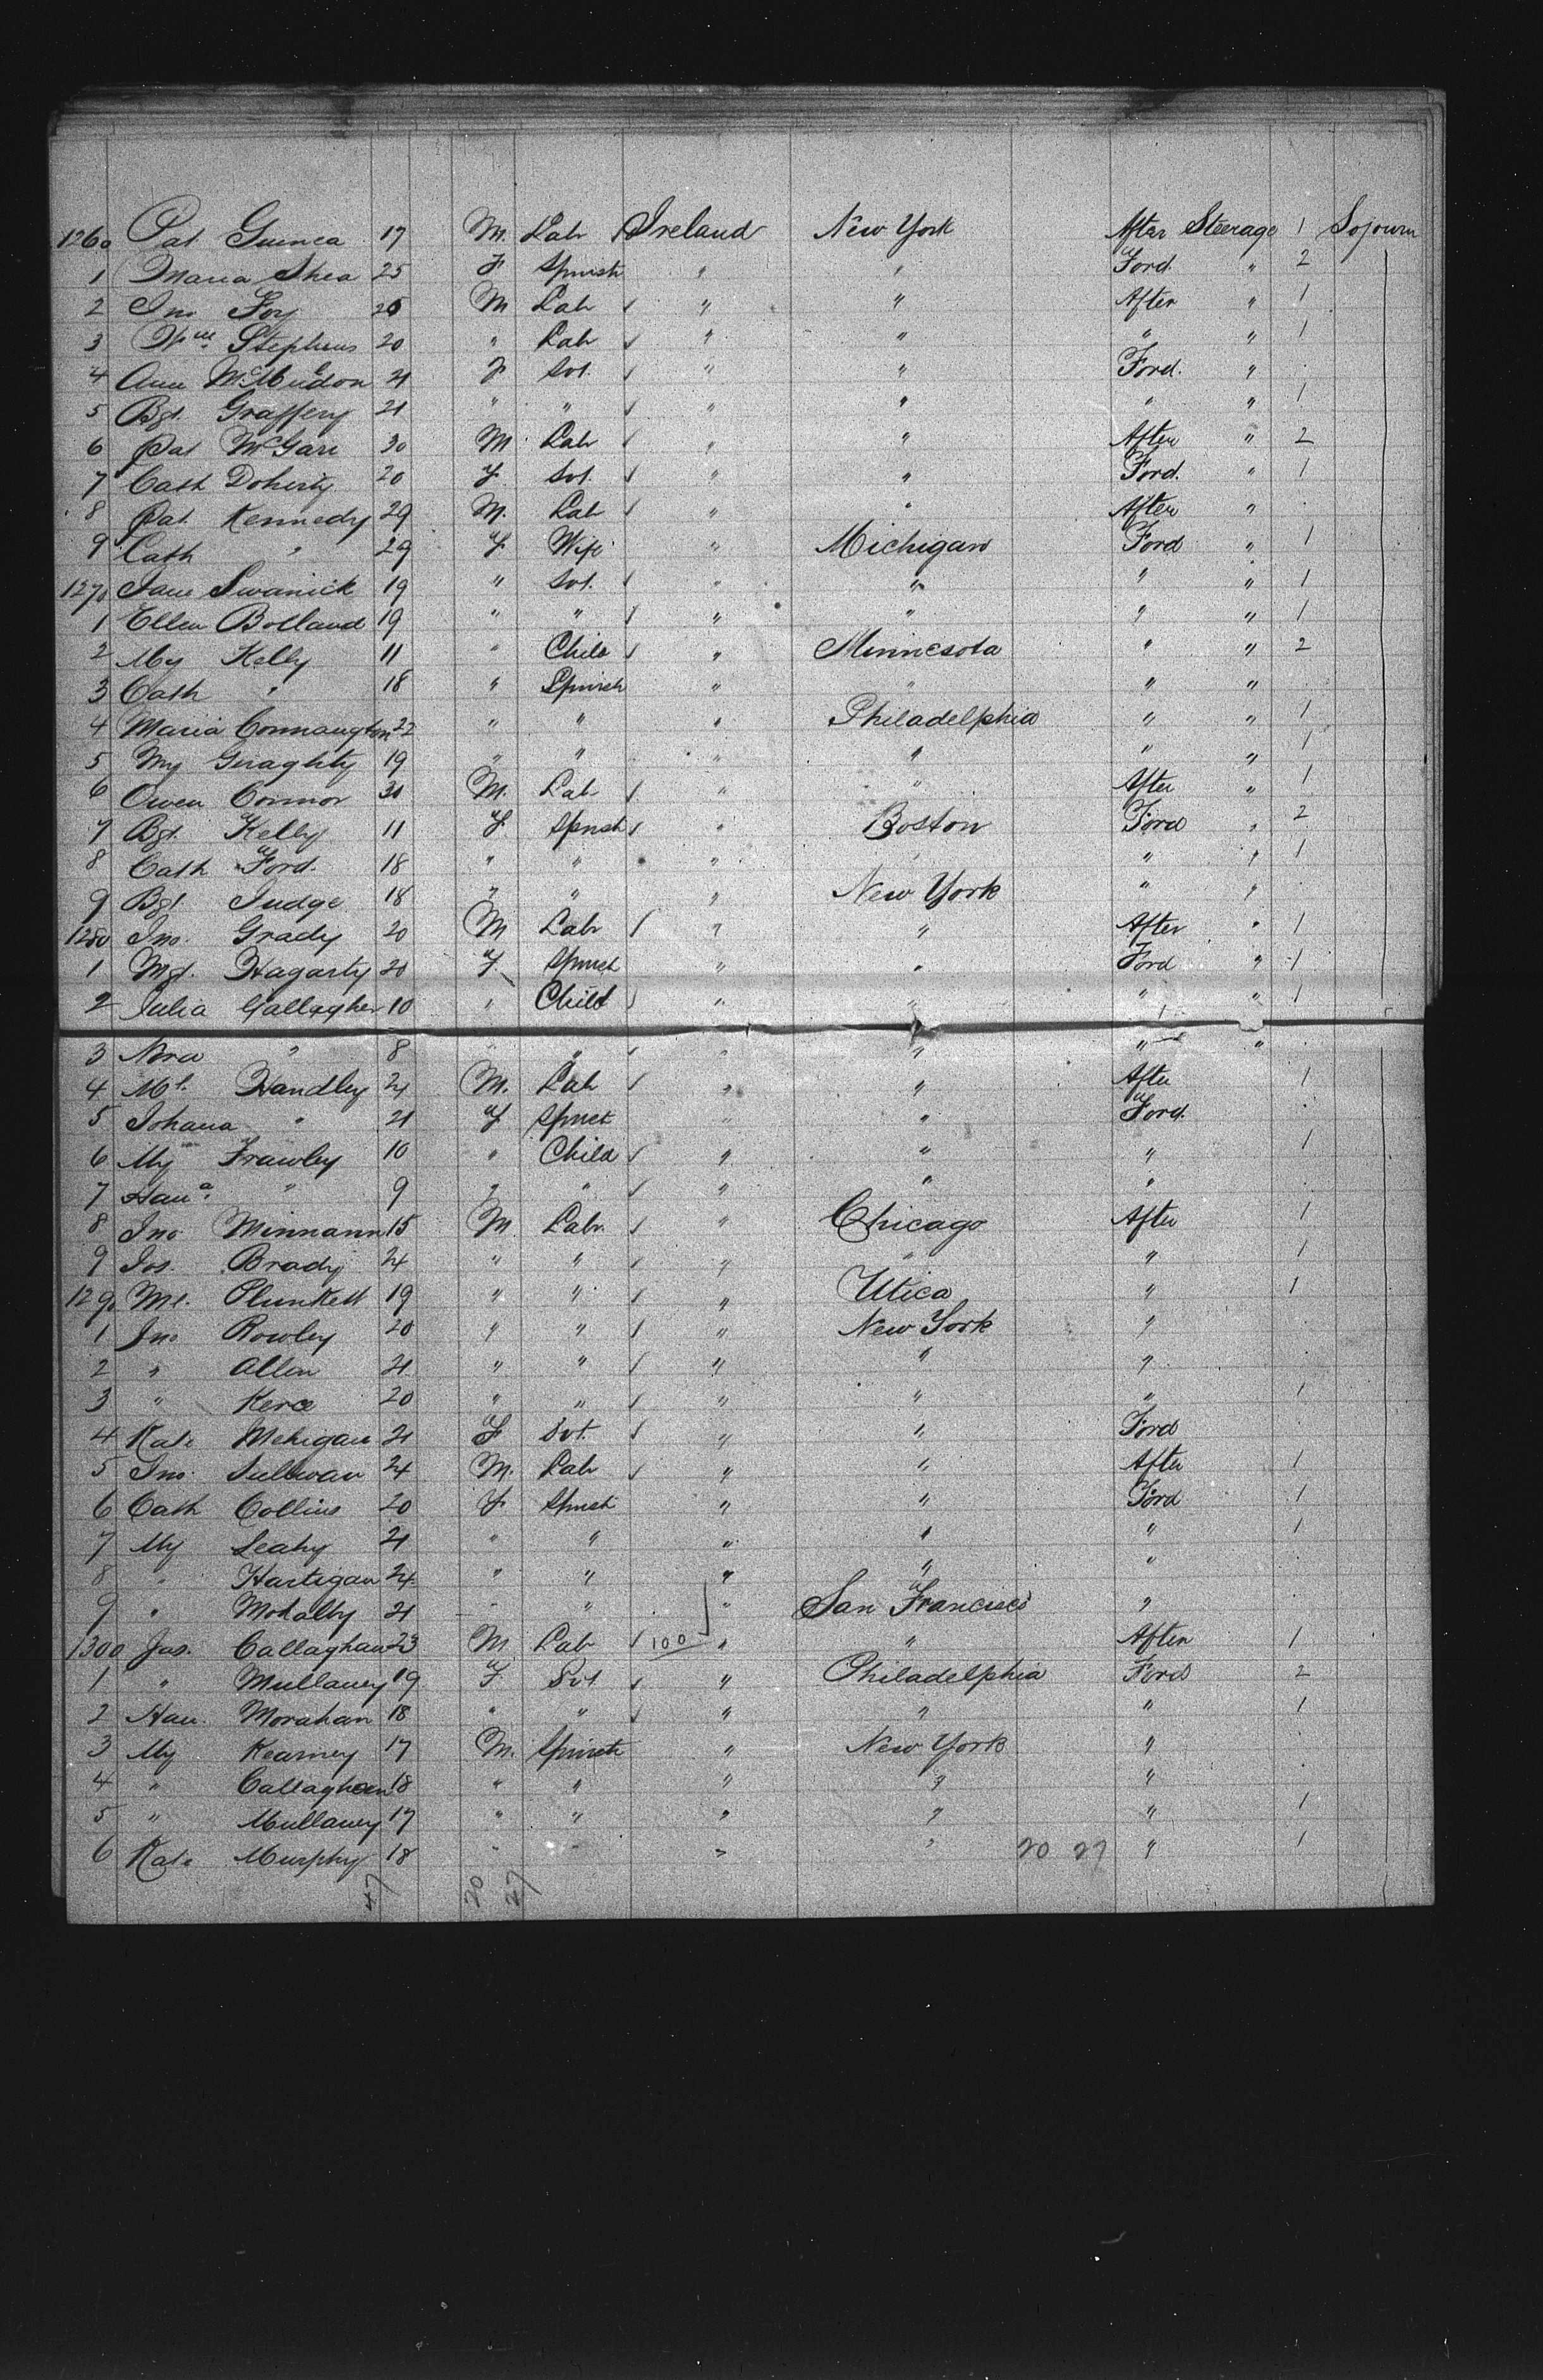 1260 Pat Guinea 17 M. Lab Ireland New York After Steerage 1 Sojourn
1 Maria Shea 25 F Spinst " " Ford. " 2
2 Jno Foy M Lab " " After " 1
3 Wm Stephens 20 " Lab " " " " 1
4 Ann 21 F Svt. " " Ford. "
5 Bgt. Graffery 21 " " " " " " 1
6 Pat McGari 30 M Lab " " After " 2
7 Cath Doherty 20 F. Svt. " " Ford. " 1
8 Pat Kennedy 29 M. Lab " " After "
9 Cath " 29 F Wife " Michigan Ford " 1
1270 Jane Swanick 19 " Svt. " " " " 1
1 Ellen Bolland 19 " " " " " " 1
2 My Kelly 11 " Child " Minnesota " " 2
3 Cath " 18 " Spinst " " " "
4 Maria Connaughton 22 " " " Philadelphia " " 1
5 My Geraghty 19 " " " " " " 1
6 Owen Connor 30 M. Lab " " After " 1
7 Bgt. Kelly 11 F Spnst " Boston Ford " 2
8 Cath Ford. 18 " " " " " " 1
9 Bgt. Judge 18 " " " New York " "
1280 Jno. Grady 20 M Labr " " After " 1
1 Mgt. Hagarty 20 F. Spinst " " Ford " 1
2 Julia Gallagher 10 " Child " " " " 1
3 Nora " 8 " " " " " "
4 Ml. Handley 24 M. Lab " " After 1
5 Johana " 21 F Spnst " " Ford.
6 My Frawley 10 " Child " " " 1
7 Hana. " 9 " " " " "
8 Jno Minnann 15 M Labr. " Chicago After 1
9 Jos. Brady 24 " " " " " 1
1290 Ml. Plunkett 19 " " " Utica " 1
1 Jno Rowley 20 " " " New York "
2 " Allen 21 " " " " "
3 " Kerce 20 " " " " " 1
4 Kate Mehigan 21 F Svt. " " Ford
5 Jno. Sullivan 24 M. Lab " " After 1
6 Cath Collins 20 F Spnst " " Ford 1
7 My Leahy 21 " " " " " 1
8 " Hartigan 24 " " " " "
9 " 21 " " " San Francisco "
1300 Jas. Callaghan 23 M Lab 100 " " After 1
1 " Mullaney 19 F Svt " Philadelphia Ford 2
2 Han. Morahan 18 " " " " " 1
3 My Kearney 17 M. Spinst " New York "
4 " Callaghan 18 " " " " "
5 " Mullaney 17 " " " " " 1
6 Kate Murphy 18 " " " " 20 27 " 1
47 20 27